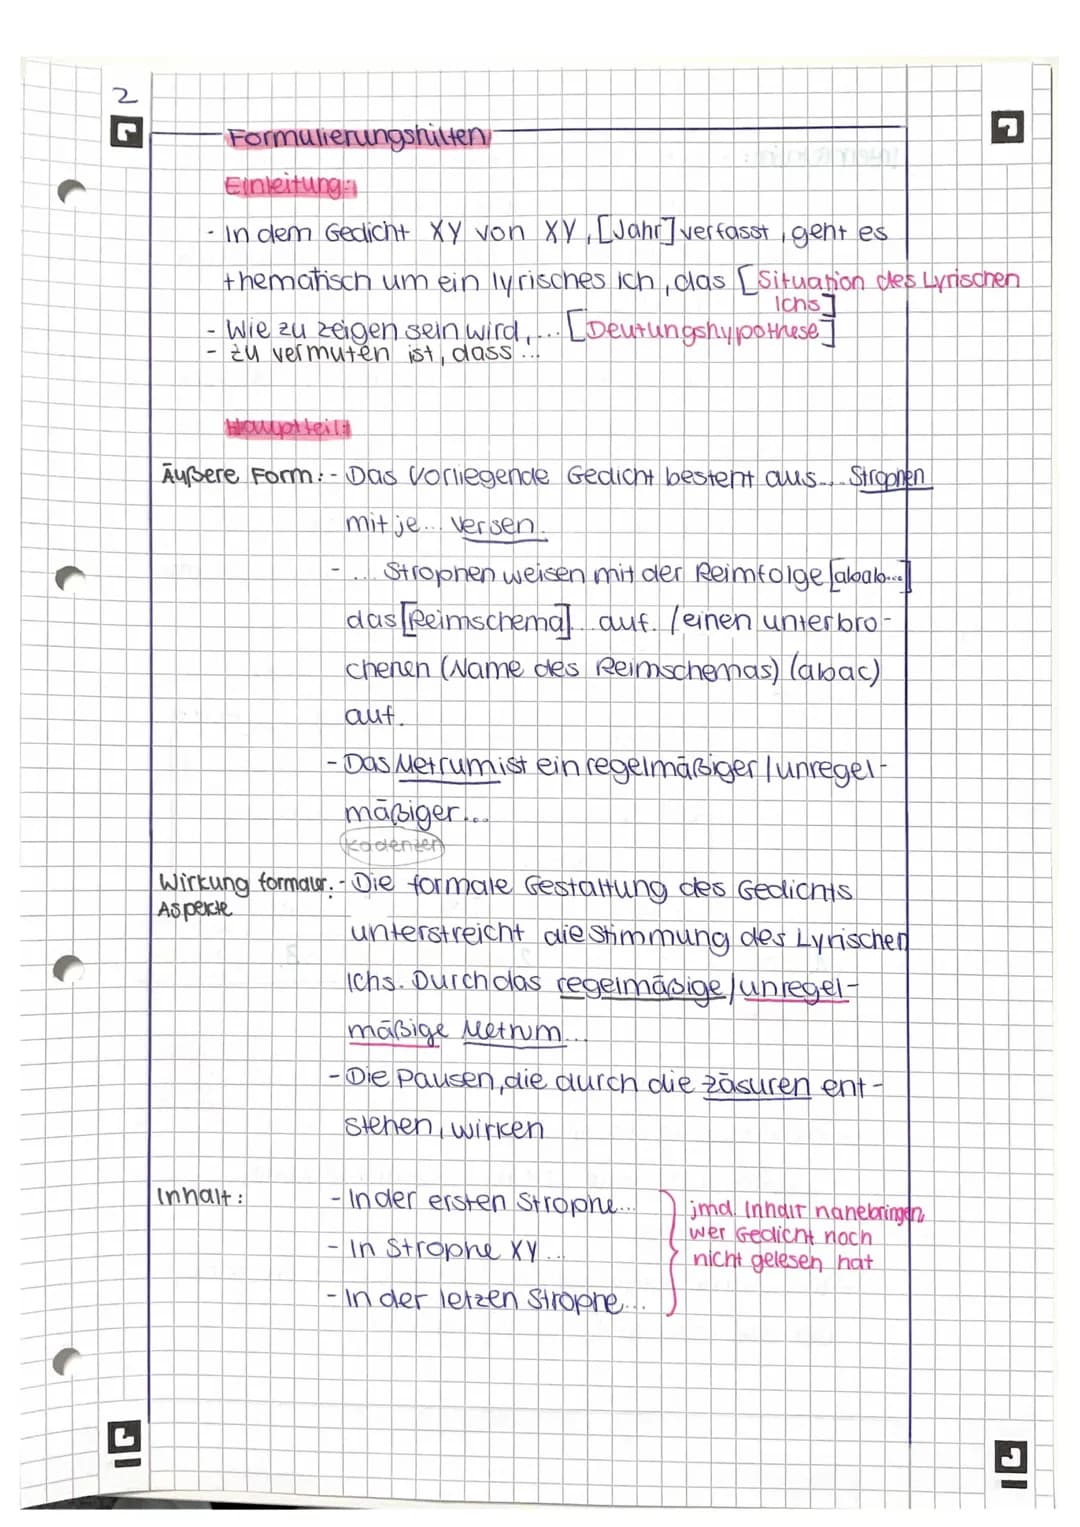 2
Formulierungshilfen
Einleitung:
- In dem Gedicht XY von XY, [Jahr] verfasst, geht es
thematisch um ein lyrisches Ich, das [Situation des Lyrischen
Ichs]
- Wie zu zeigen sein wird, ... [Deutungshypothese]
- Zu vermuten ist, dass ...
Hauptteil:
Äußere Form: - Das Vorliegende Gedicht besteht aus ... Strophen
mit je ... Versen.
- ... Strophen weisen mit der Reimfolge [abab...]
das [Reimschema] auf. / einen unterbro-
chenen (Name des Reimschemas) (abac)
auf.
- Das Metrum ist ein regelmäßiger / unregel-
mäßiger ...
Kadenzen
Wirkung formaler. - Die formale Gestaltung des Gedichts
Aspekte
unterstreicht die Stimmung des Lyrischen
Ichs. Durch das regelmäßige / unregel-
mäßige Metrum ...
- Die Pausen, die durch die Zäsuren ent-
stehen, wirken
Inhalt: - In der ersten Strophe ...
- In Strophe XY ...
- In der letzen Strophe ...
jmd. Inhalt nahebringen,
wer Gedicht noch
nicht gelesen hat